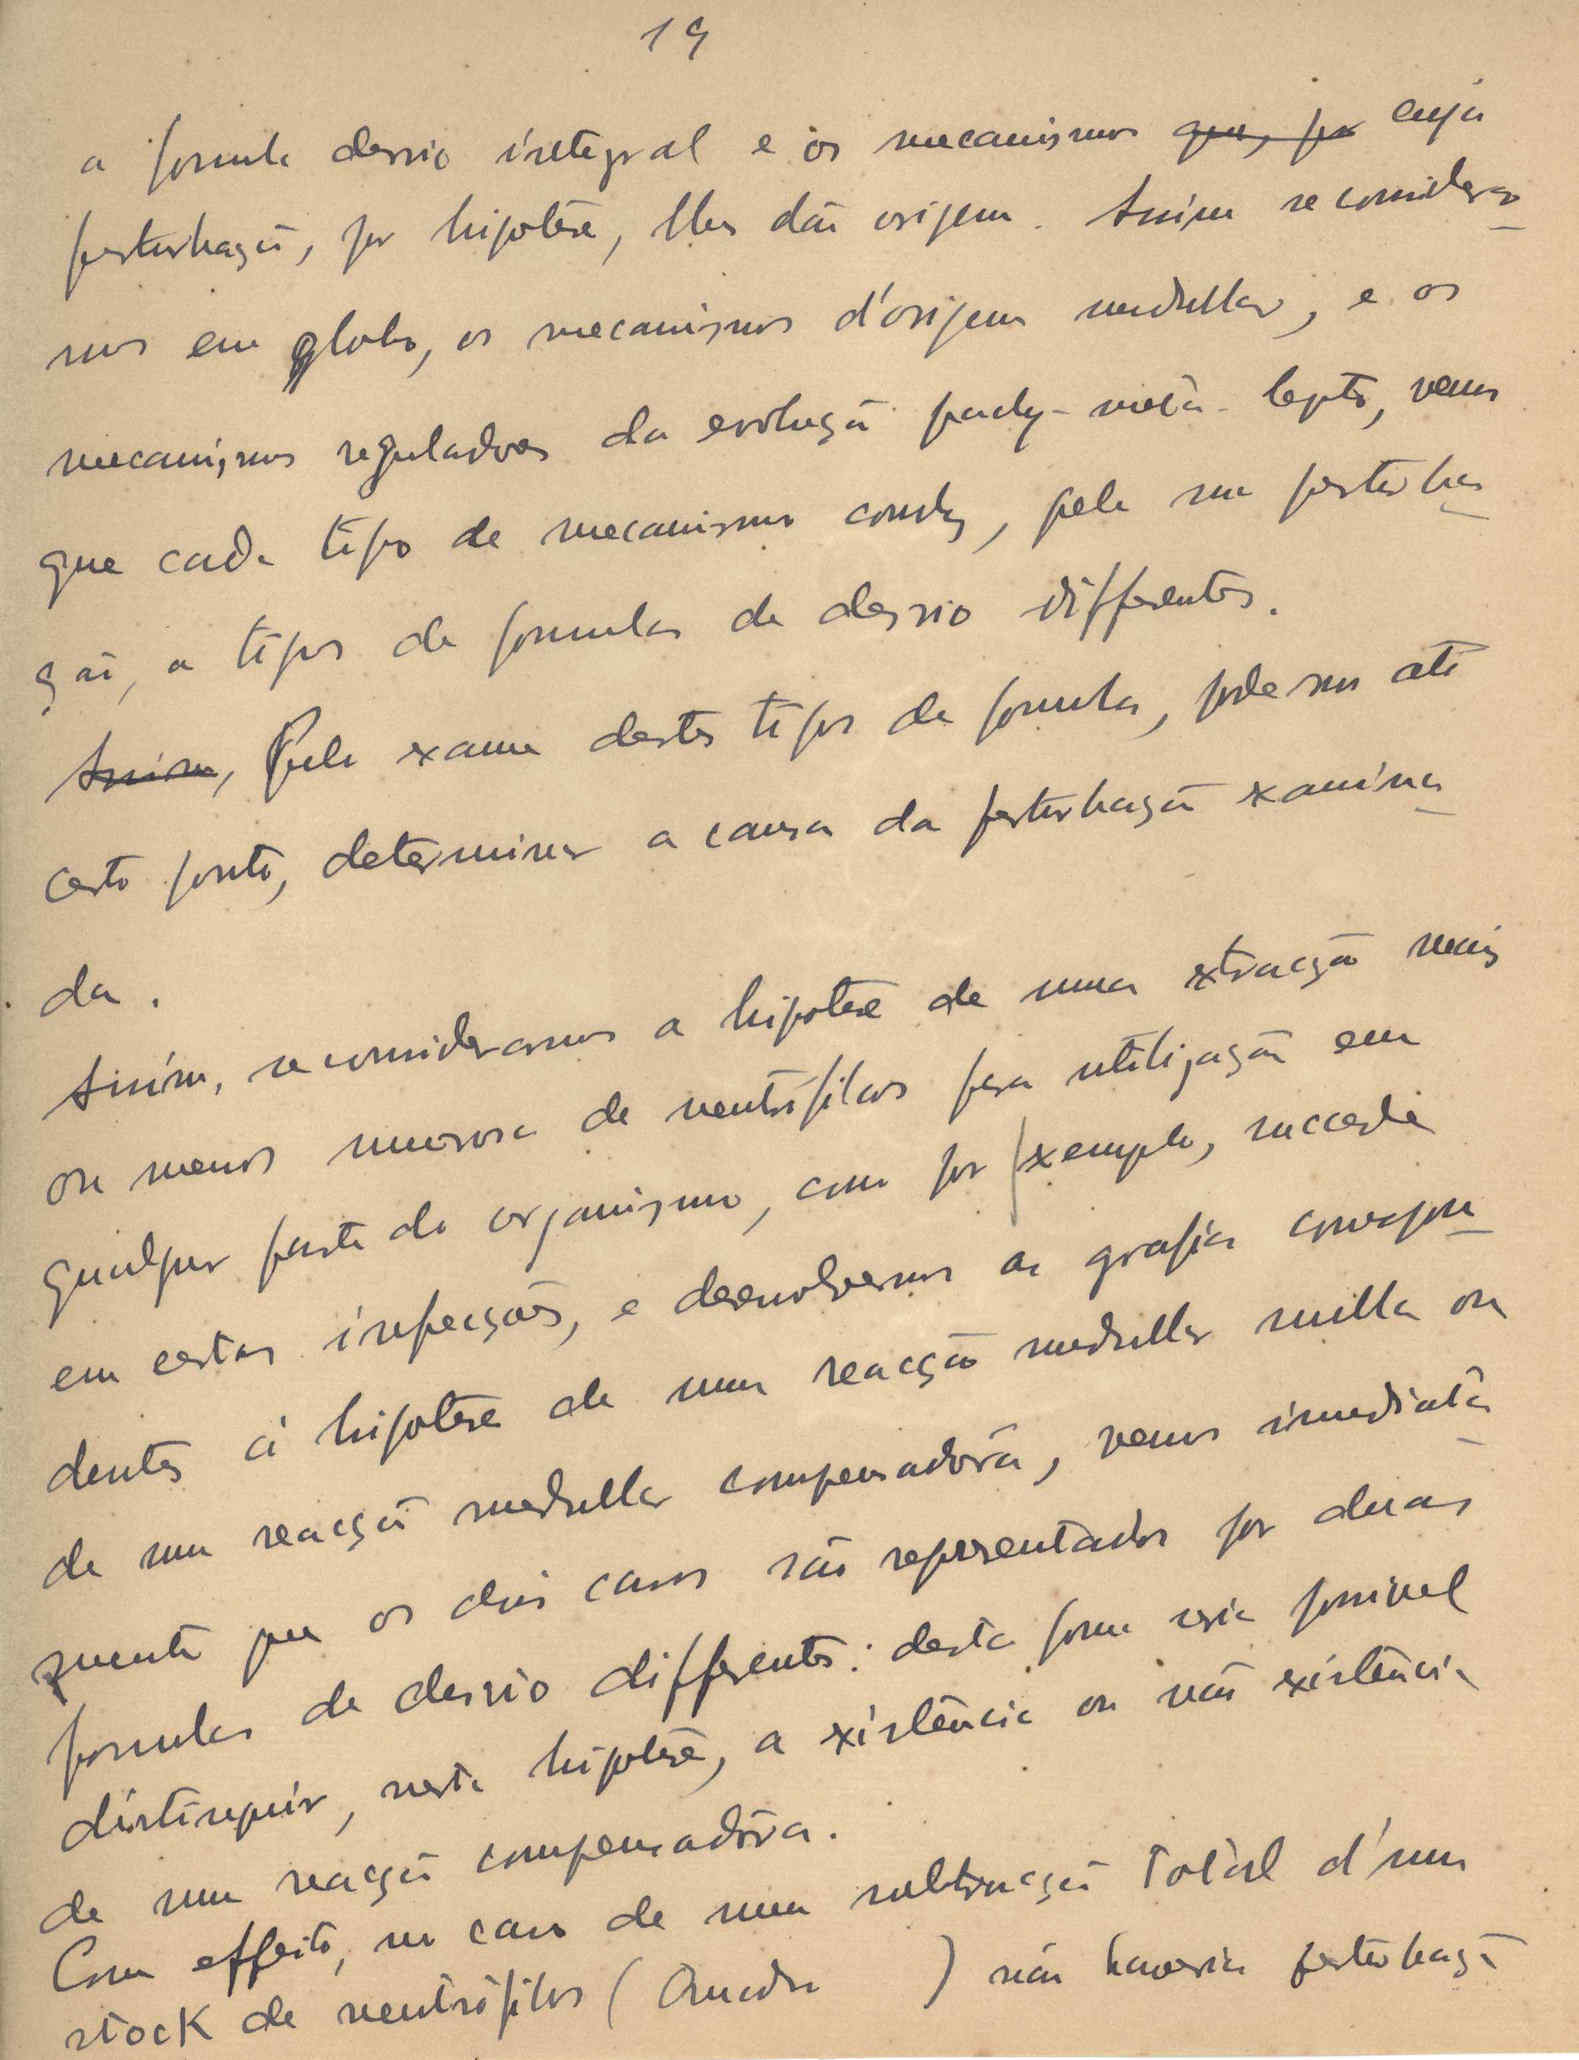 19
a formula desvio integral e os mecanismos que, por cuja
perturbação, por hipótese, lhes dão origem. Assim se considerar-
mos em globo, os mecanismos d'origem medullar, e os
mecanismos reguladores da evolução pachy-meta-lepto, vemos
que cada tipo de mecanismo conduz, pela sua perturba-
ção, a tipos de formulas de desvio differentes.
Assim, Pelo exame destes tipos de formula, podemos até
certo ponto, determinar a causa da perturbação examina-
da.
Assim, se considerarmos a hipótese de uma extracção mais
ou menos numerosa de neutrófilos para utilização em
qualquer parte do organismo, como por exemplo, succede
em certas infecções, e desenvolvermos os graficos correspon-
dentes á hipótese de uma reacção medullar nulla ou
de uma reacção medullar compensadora, vemos imediata-
mente que os dois casos são representados por duas
formulas de desvio differentes: desta forma seria possivel
distinguir, nesta hipótese, a existência ou não existência
de uma reacção compensadora.
Com effeito, no caso de uma subtracção total d'um
stock de neutrófilos (Quadro ) não haveria perturbação